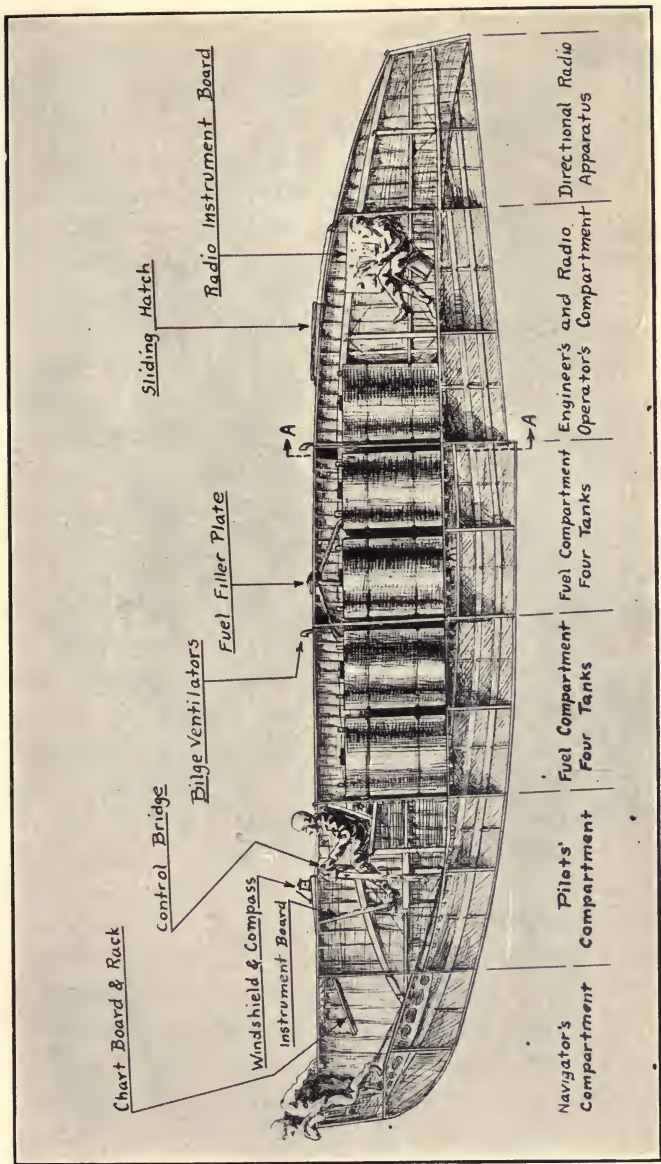 Chart Board & Rack
Control Bridge
Windshield & Compass
Instrument Board
Bilge Ventilators
Fuel Filler Plate
Sliding Hatch
Radio Instrument Board
A
A
Navigator's
Compartment
Pilots'
Compartment
Fuel Compartment
Four Tanks
Fuel Compartment
Four Tanks
Engineer's and Radio
Operator's Compartment
Directional Radio
Apparatus